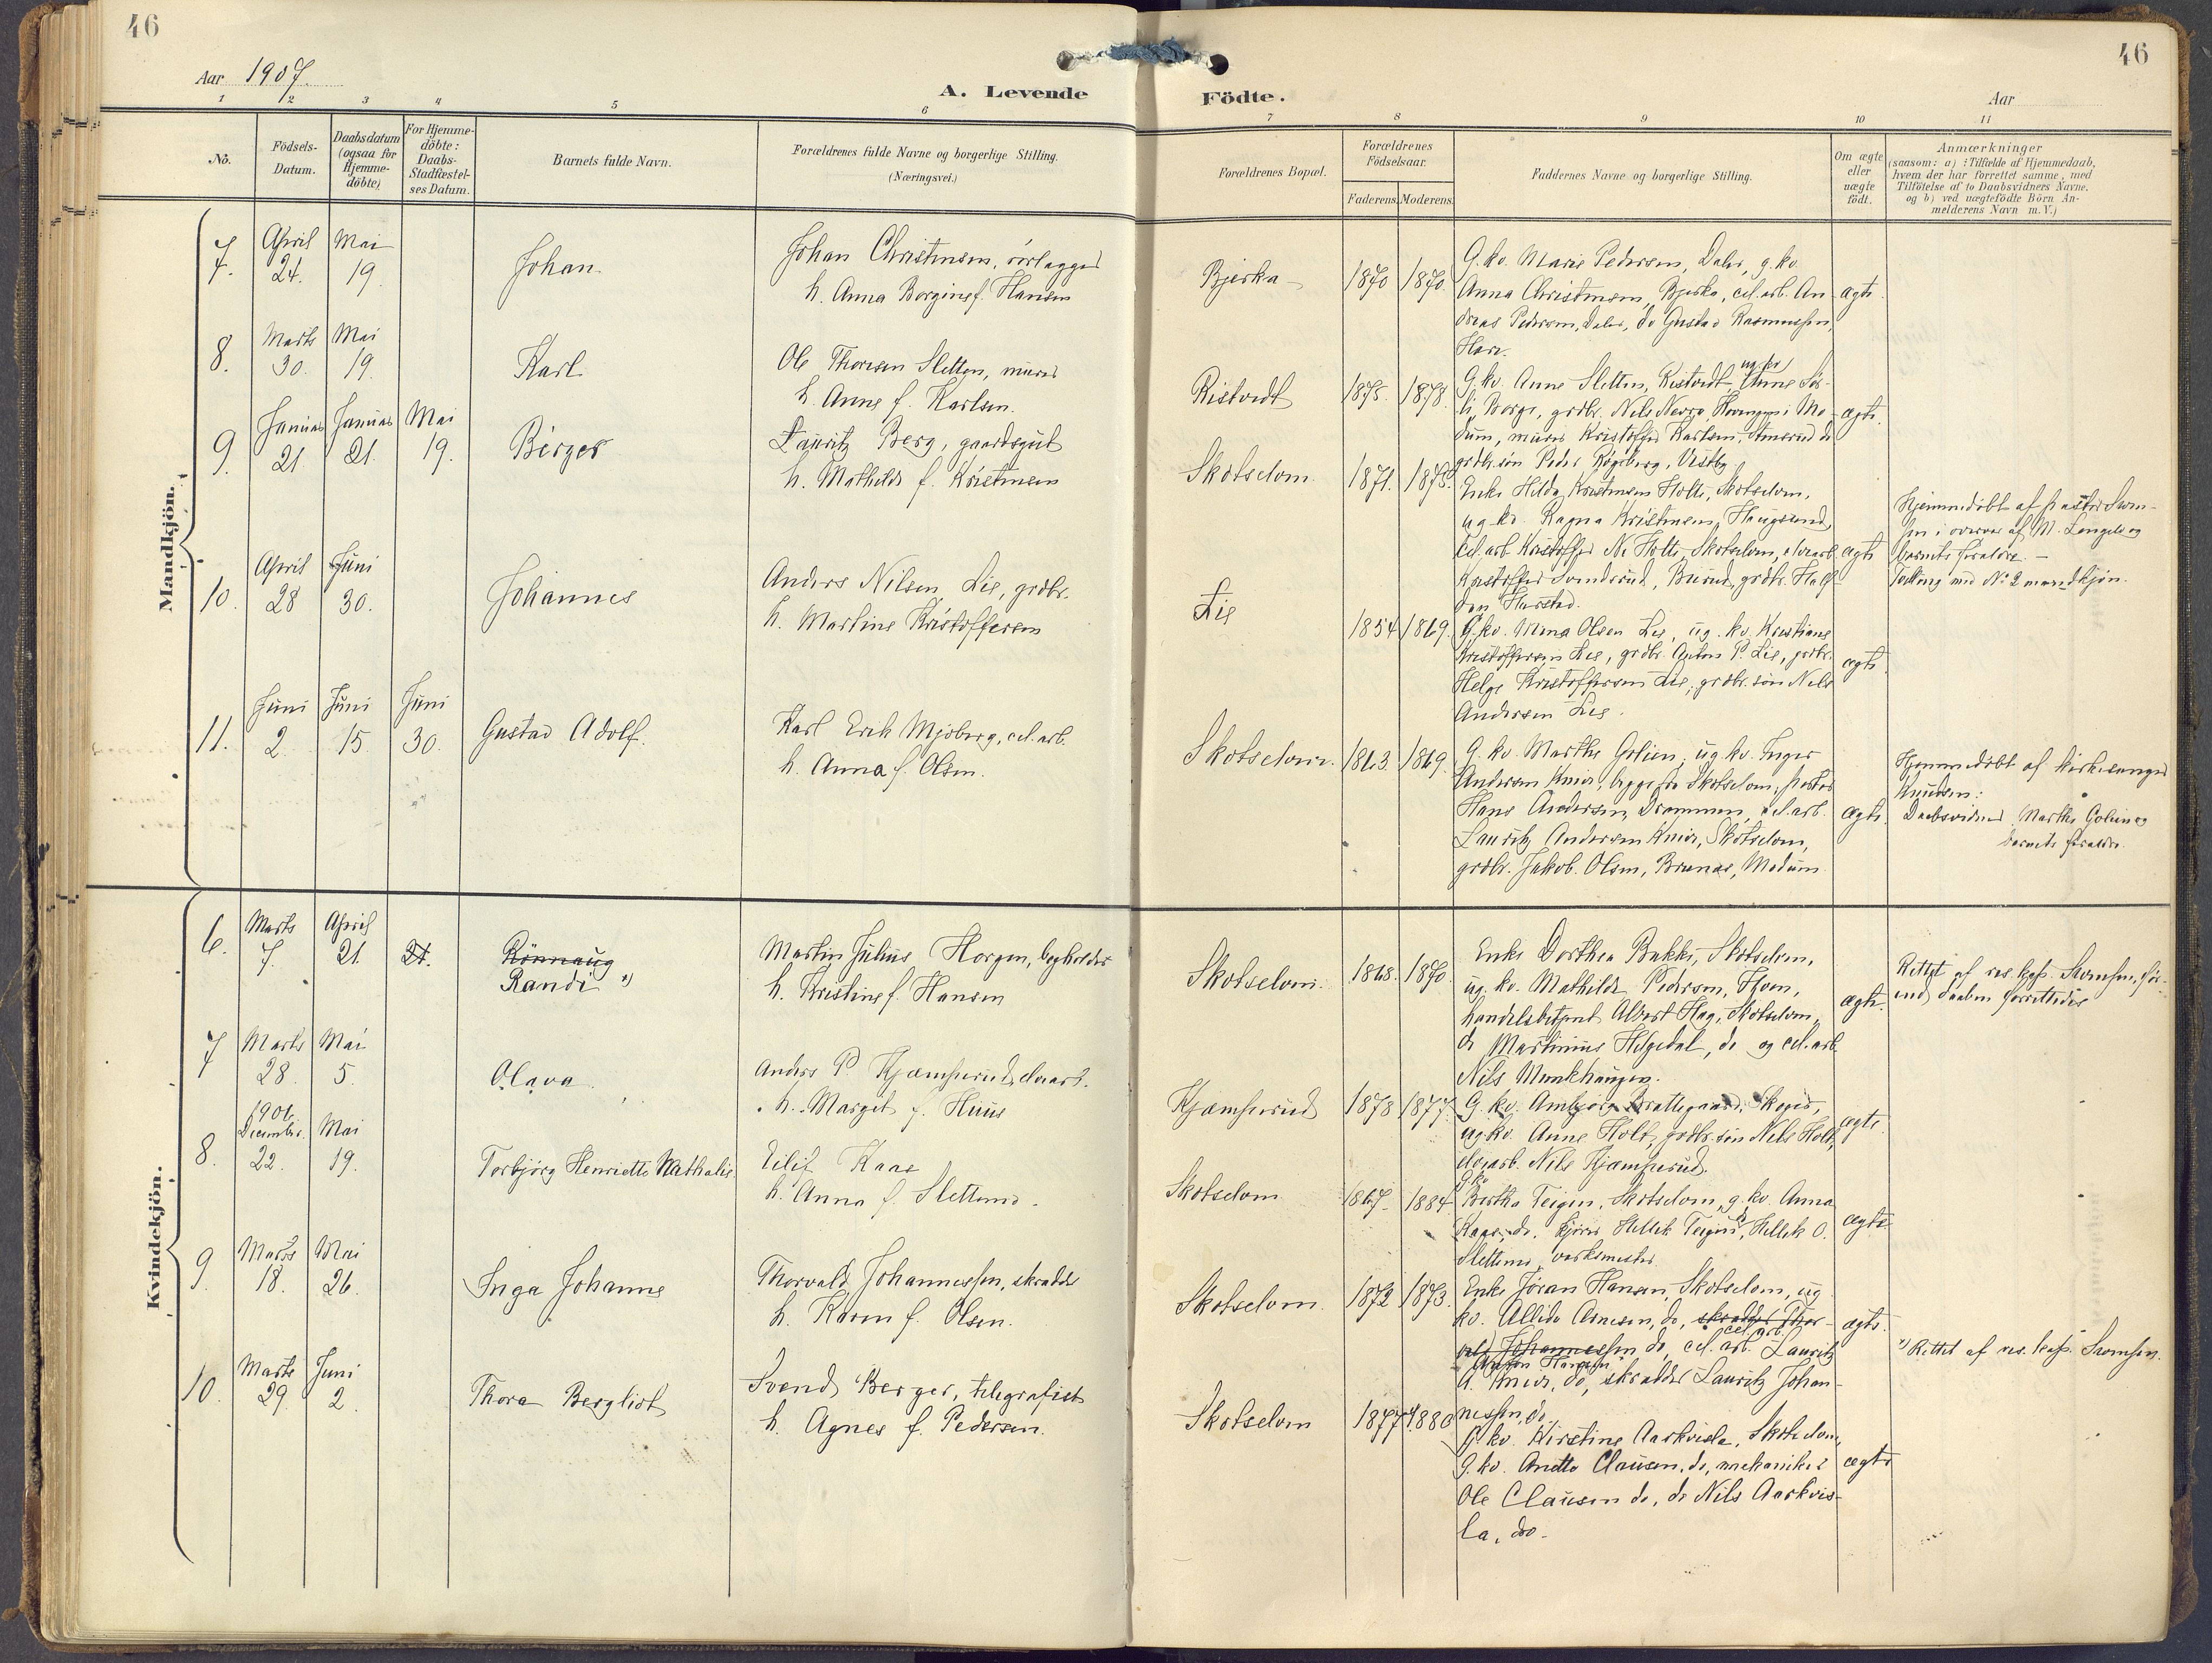 46
46
Aar 1907.
A. Levende Födte.
Aar
1 2 3 4 5 6 7 8 9 10 11
No.
Födsels-
Datum.
Daabsdatum
(ogsaa for
Hjemme-
döbte)
For Hjemme-
döbte:
Daabs-
Stadfæstel-
ses Datum.
Barnets fulde Navn.
Forældrenes fulde Navne og borgerlige Stilling.
(Næringsvei.)
Forældrenes Bopæl.
Forældrenes
Födselsaar.
Faderens. Moderens.
Faddernes Navne og borgerlige Stilling.
Om ægte
eller
uægte
födt.
Anmærkninger
(saasom: a) : Tilfælde af Hjemmedaab,
hvem der har forrettet samme, med
Tilföielse af to Daabsvidners Navne.
og b) ved uægtefödte Börn An-
melderens Navn m.V.)
Mandkjön.
7.
April
24.
Mai
19.
Johan
Johan Christensen, rörlægger
h. Anna Borgine f. Hansen
Bjerka
1870
1870.
G. kv. Marie Pedersen, Daler, g. kv.
Anna Christensen, Bjerka, cel. arb. An-
dreas Pedersen, Daler, do Gustav Rasmussen,
Horn.
ægte.
8.
Marts
30.
Mai
19.
Karl
Ole Thoresen Sletten, murer
h. Anne f. Karlsen.
Ristvedt
1875.
1878.
G. kv. Anne Sletten, Ristvedt, ug. kv. Anne
Borge, grdbr. Nils i Mo-
dum, murer Kristoffer Karlsen, do
grdbr. søn Peder Røgeberg, Vestby
ægte.
9.
Januar
21
Januar
21.
Mai
19.
Birger
Lauritz Berg, gaardsgut
h. Mathilde f. Kristensen
Skotselven.
1871.
1875.
Enke Hilda Kristensen Holte, Skotselven,
ug. kv. Ragna Kristensen, Haugsund,
cel. arb. Kristoffer N. Holte, Skotselven, elvearb.
Kristoffer Svendsrud, Burud, grdbr. Half-
dan Harstad.
ægte
Hjemmedöbt af pastor Svend-
sen i overvær af M. Lengele og
barnets forældre. —
Tvilling med No 2 mandkjön.
10.
April
28
Juni
30.
Johannes
Anders Nilsen Lie, grdbr.
h. Martine Kristoffersen
Lie
1854
1869.
G. kv. Mina Olsen Lie, ug. kv. Kristiane
Kristoffersen Lie, grdbr. Anton P. Lie, grdbr.
Helge Kristoffersen Lie, grdbr. søn Nils
Andersen Lie.
ægte
11.
Juni
2.
Juni
15.
Juni
30.
Gustav Adolf.
Karl Erik Mjøberg, cel. arb.
h. Anna f. Olsen.
Skotselven.
1863.
1869.
G. kv. Marthe Golien, ug. kv. Inger
Andersen Knive, begge fra Skotselven,
Hans Andersen, Drammen, cel. arb.
Lauritz Andersen Knive, Skotselven,
grdbr. Jakob Olsen, Brunes, Modum
ægte.
Hjemmedöbt af kirkesanger
Knudsen:
Daabsvidner Marthe Golien og
barnets forældre.
Kvindekjön.
6.
Marts
7.
April
21.
21.
Rönnaug
Randi x)
Martin Julius Horgen, bogholder
h. Kristine f. Hansen
Skotselven.
1868.
1870.
Enke Dorthea Bakke, Skotselven,
ug. kv. Mathilde Pedersen, Hven,
handelsbetjent Albert Hag, Skotselven,
do Martinius Helgedal, do og cel. arb.
Nils Munkhaugen.
ægte.
Rettet af res. kap. Svensen, før-
end daaben forrettedes
7
Marts
28.
Mai
5.
Olava
Anders P. Kjæmperud, elvearb.
h. Margit f. Huus
Kjæmperud
1878
1877.
G. kv. Ambjørg Brattegaard, Skoger,
ug. kv. Anne Holt, grdbr. søn Nils Holt,
elvearb. Nils Kjæmperud.
ægte.
8.
1906.
December.
22.
Mai
19.
Torbjörg Henriette Nathalie
Eilif Kaas
h. Anna f. Slettene.
Skotselven
1867.
1884.
G. kv.
Bertha Teigen, Skotselven, g. kv. Anna
Kaas, do. Hellek Teigen, Hellek O.
Slettene, verksmester
ægte
9.
Marts
18.
Mai
26.
Inga Johanne
Thorvald Johannessen, skrædder
h. Karen f. Olsen.
Skotselven.
1872
1873.
Enke Jøran Hansen, Skotselven, ug.
kv. Allida Arnesen, do, skrædder Thor-
vald Johannessen do, cel. arb. Lauritz
cel. arb.
Anton Hansen
A. Knive, do, skrædder Lauritz Johan-
nessen, do.
ægte.
x) Rettet af res. kap. Svensen.
10.
Marts
29.
Juni
2.
Thora Bergliot
Svend Berger, telegrafist
h. Agnes f. Pedersen.
Skotselven
1877
1880
G. kv. Kirstine Aarkvisla, Skotselven,
G. kv. Anette Clausen, do, mekaniker
Ole Clausen do, do Nils Aarkvis-
la, do.
ægte